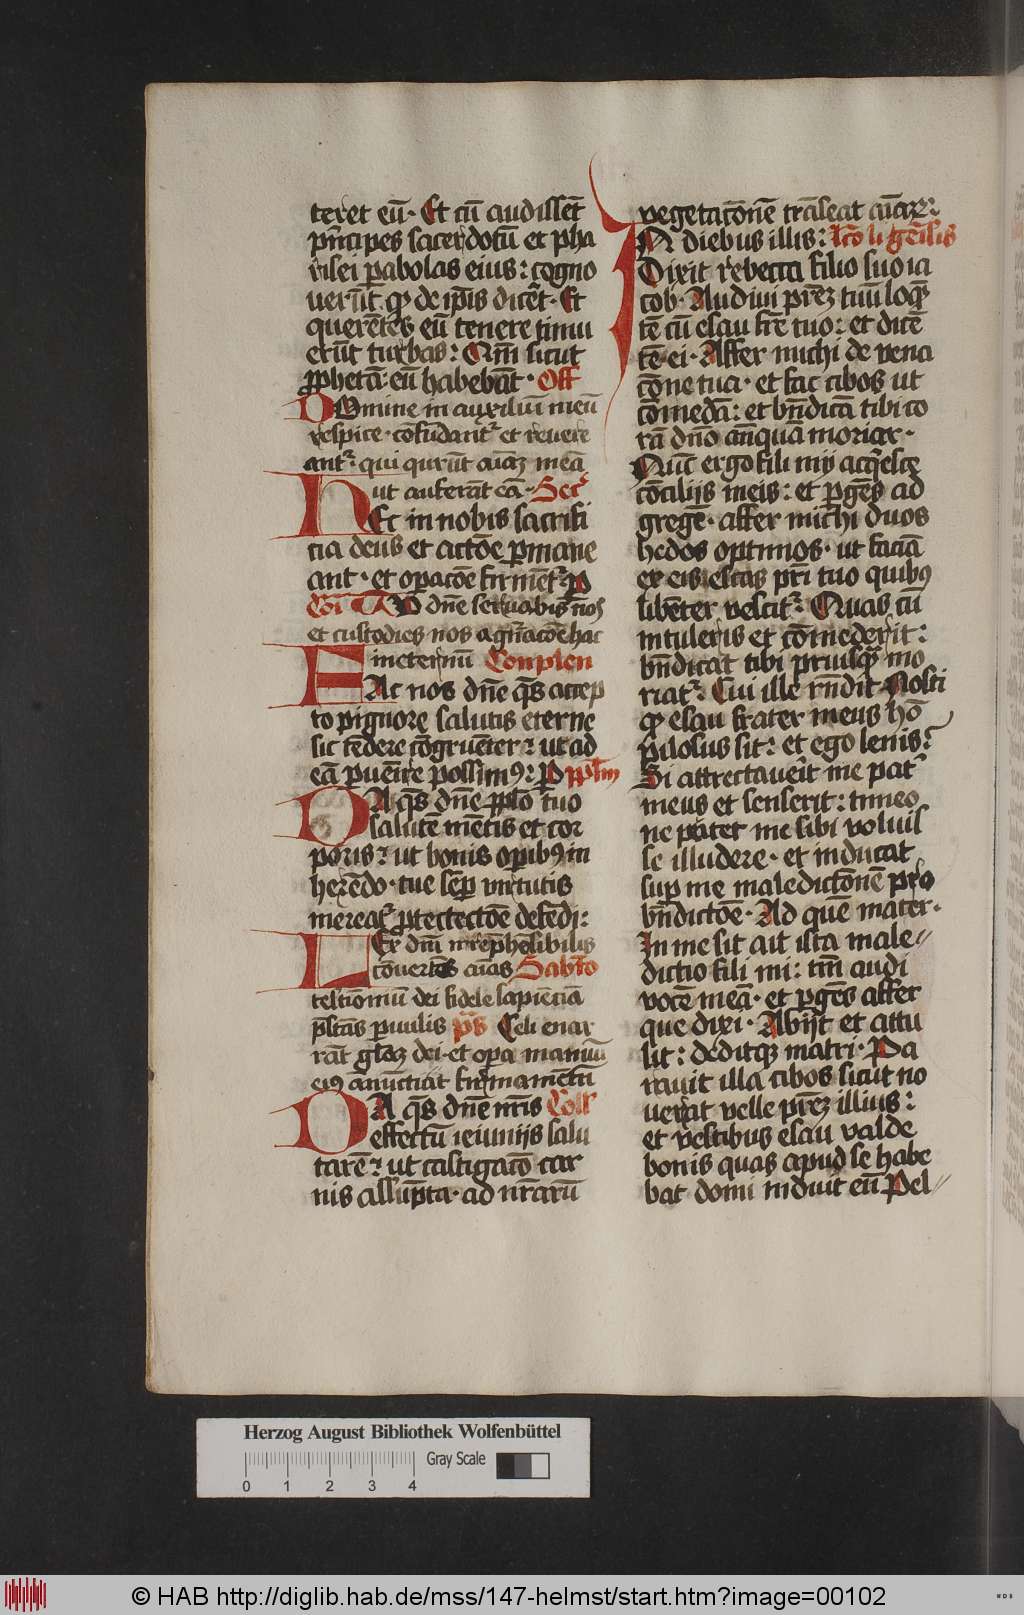 teret eū· Et cū audissēt
pͥncipes sacerdotū et pha
risei pabolas eius: cogno
uerūt ꝙ de ip̄is dicēt· Et
querētes eū tenere timu
erūt turbas: Qm̄ sicut
ꝓphetā eū habebāt· Off
DOmine in auxiliū meū
respice· cōfūdantʳ et reuere
antʳ qui querūt aīaꝫ meā
ut auferāt eā· Secʳ
HEc in nobis sacrifi
cia deus et actōe ꝑmane
ant· et oꝑacōe firmētʳ ꝑ
Cōi TU dn̄e seruabis nos
et custodies nos a gn̄acōe hac
in eternū Conplen
FAc nos dn̄e qs̄ accep
to pignore salutis eterne
sic tēdere cōgruēter: ut ad
eā ꝑuēire possimꝰ: ꝑ
DA qs̄ dn̄e pplo tuo
salutē mētis et cor
poris: ut bonis oꝑibꝰ in
herēdo· tue sēꝑ uirtutis
mereatʳ ꝓtectectōe defēdi:
LEx dn̄i irrep̄hēsibilis
cōuertēs aīas Sabb̄to
testīoniū dei fidele sapiēciā
p̄stās ꝑuulis p̄s Celi enar
rāt gl̄aꝫ dei· et oꝑa manuū
eiꝰ an̄unctiāt firmamētū
DA qs̄ dn̄e nr̄is Coll
effectū ieiunijs salu
tarē: ut castigacō car
nis assūpta· ad nr̄arū
vegetacōnē trāseat aīaꝝ:
IN diebus illis: lc̄o li gen̄sis
Dixit rebecca filio suo ia
cob· Audiui prēꝫ tuū loqͣ
tē cū esau fr̄e tuo: et dicē
tē ei· Affer michi de vena
cōne tua· et fac cibos ut
cōmedā: et bn̄dicā tibi co
rā dn̄o an̄quā moriar·
Nūc ergo fili mi acq̄esce
cōciliis meis: et ꝑgēs ad
gregē· affer michi duos
hedos optimos· ut faciā
ex eis escas pr̄i tuo quibꝰ
libēter vescitʳ: Quas cū
intuleris et cōmederit:
bn̄dicat tibi priusqͣ mo
riatʳ: Cui ille rn̄dit· Nosti
ꝙ esau frater meus hō
pilosus sit: et ego lenis:
Si attrectauēit me patʳ
meus et senserit: timeo
ne putet me sibi voluis
se illudere· et inducat
suꝑ me maledictōnē pro
bn̄dictōe· Ad quē mater·
In me sit ait ista male
dictio fili mi: tm̄ audi
vocē meā· et ꝑgēs affer
que dixi· Abijt et attu
lit: deditqꝫ matri· Pa
rauit illa cibos sicut no
uerat velle prēꝫ illius:
et vestibus esau valde
bonis quas apud se habe
bat domi induit eū Pel
Herzog August Bibliothek Wolfenbüttel
Gray Scale
0 1 2 3 4
© HAB http://diglib.hab.de/mss/147-helmst/start.htm?image=00102